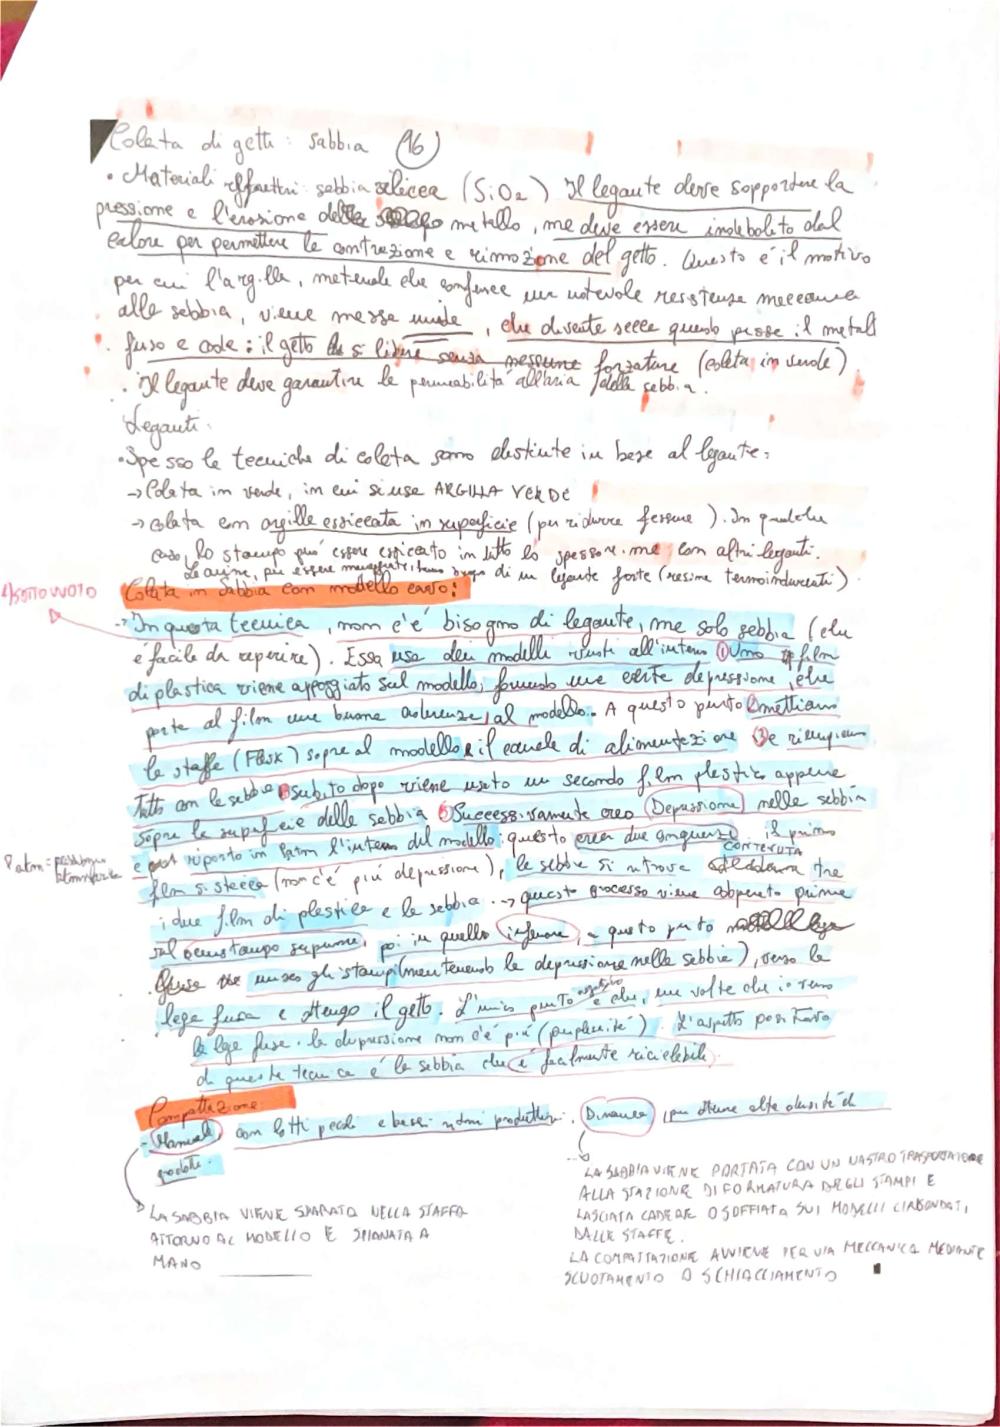 Colata di getti: sabbia (96)
• Materiali refrattari: sabbia silicea (SiO2) Il legante deve sopportare la
pressione e l'erosione del metallo, ma deve essere indebolito dal
calore per permettere la contrazione e rimozione del getto. Questo è il motivo
per cui l'argilla, materiale che conferisce una notevole resistenza meccanica
alla sabbia, viene messa umida, che diventa secca quando passa il metallo
fuso e cade: il getto si libera senza nessuna forzatura (colata in verde).
• Il legante deve garantire la permeabilità all'aria della sabbia.
Leganti:
• Spesso le tecniche di colata sono distinte in base al legante:
→ Colata in verde, in cui si usa ARGILLA VERDE
→ colata con argilla essiccata in superficie (per ridurre fessure). In qualche
caso, lo stampo può essere essiccato in tutto lo spessore. ma con altri leganti.
Le anime, per essere hanno bisogno di un legante forte (resine termoindurenti)
Colata in sabbia con modello cavo:
SOTTO VUOTO
→ In questa tecnica, non c'è bisogno di legante, ma solo sabbia (che
è facile da reperire). Essa usa dei modelli vuoti all'interno ① Uno film
di plastica viene appoggiato sul modello, formando una certa depressione, che
porta al film una buona aderenza al modello. A questo punto ② mettiamo
la staffa (Flask) sopra al modello e il canale di alimentazione ③ e riempiamo
tutto con la sabbia ④ subito dopo viene usato un secondo film plastico appena
sopra la superficie della sabbia ⑤ Successivamente creo Depressione nella sabbia
e riporto in Patm l'interno del modello: questo crea due conseguenze. il primo
Patm = pressione atmosferica
film si stacca (non c'è più depressione), la sabbia si ritrova CONTENUTA tra
i due film di plastica e la sabbia. → questo processo viene adoperato prima
sul semistampo superiore, poi in quello inferiore, a questo punto
unisco gli stampi (mantenendo la depressione nella sabbia), verso la
lega fusa e ottengo il getto. L'unico punto negativo è che, una volta che io verso
la lega fusa, la depressione non c'è più (permeabilità). L'aspetto positivo
di questa tecnica è la sabbia che è facilmente riciclabile.
Compattazione:
- Manuale, con lotti piccoli e bassi ritmi produttivi. Dinamica, per ottenere alte densità di
prodotti.
LA SABBIA VIENE PORTATA CON UN NASTRO TRASPORTATORE
ALLA STAZIONE DI FORMATURA DEGLI STAMPI E
LASCIATA CADERE O SOFFIATA SUI MODELLI CIRCONDATI
DALLE STAFFE.
LA COMPATTAZIONE AVVIENE PER VIA MECCANICA MEDIANTE
SCUOTAMENTO O SCHIACCIAMENTO
LA SABBIA VIENE SPARATA NELLA STAFFA
ATTORNO AL MODELLO E SPIANATA A
MANO